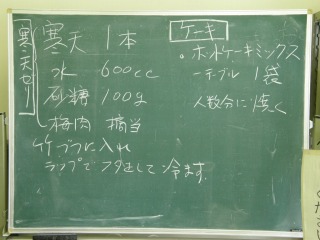 寒天ゼリー
寒天 1本
水 600cc
砂糖 100g
梅肉 摘当
竹ブツに入れ
ランプでフタをして冷ます。
ケーキ
。ホットケーキミックス
一テーブル 1袋
人数分に焼く